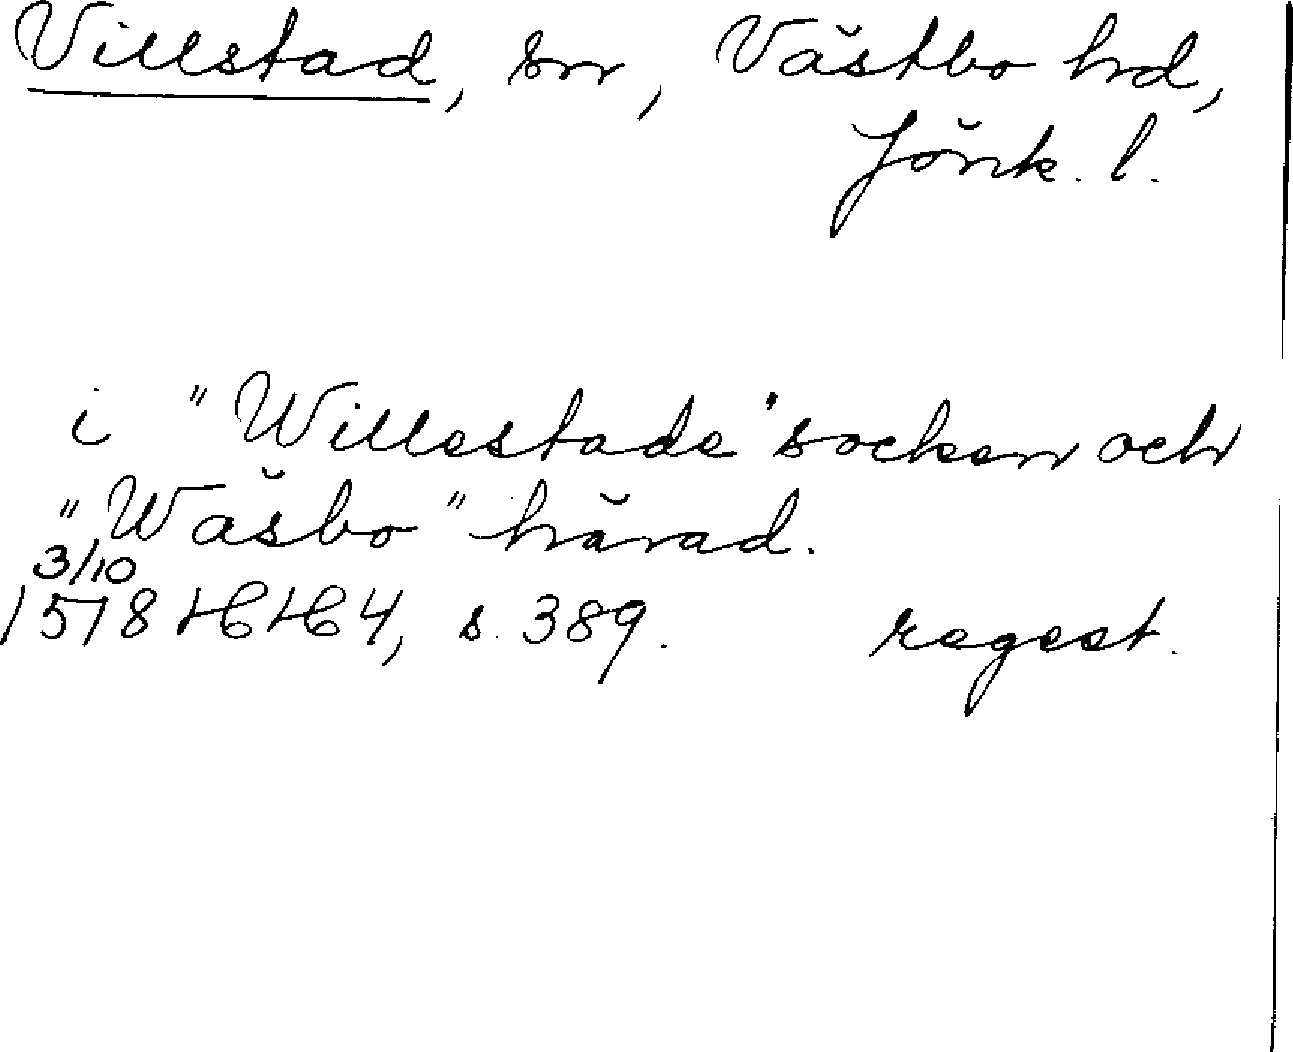 Villstad, sn, Västbo hd,
Jönk. l.
i "Willestade" socken och
"Wäsbo" härad.
3/10
1578 HH 4, s. 389. regest.